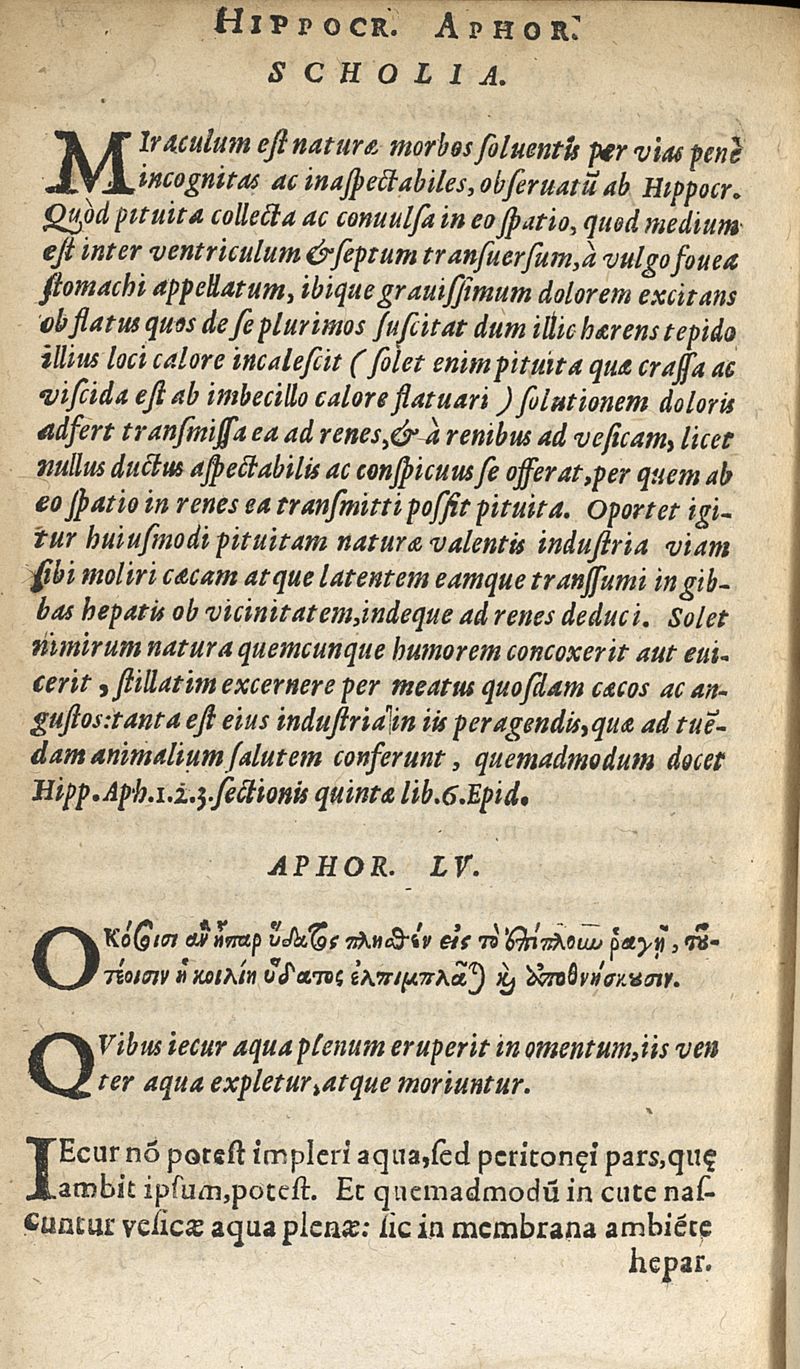 HIPPOCR. APHOR.
SCHOLIA.
MIraculum est naturæ morbos soluentis per vias penè
incognitas ac inaspectabiles, obseruatū ab Hippocr.
Quòd pituita collecta ac conuulsa in eo spatio, quod medium
est inter ventriculum & septum transuersum, à vulgo fouea
stomachi appellatum, ibique grauissimum dolorem excitans
ob flatus quos de se plurimos suscitat dum illic hærens tepido
illius loci calore incalescit ( solet enim pituita quæ crassa ac
viscida est ab imbecillo calore flatuari ) solutionem doloris
adfert transmissa ea ad renes, & à renibus ad vesicam, licet
nullus ductus aspectabilis ac conspicuus se offerat, per quem ab
eo spatio in renes ea transmitti possit pituita. Oportet igi-
tur huiusmodi pituitam naturæ valentis industria viam
sibi moliri cæcam atque latentem eamque transsumi in gib-
bas hepatis ob vicinitatem, indeque ad renes deduci. Solet
nimirum natura quemcunque humorem concoxerit aut eui-
cerit, stillatim excernere per meatus quosdam cæcos ac an-
gustos: tanta est eius industria in iis peragendis, quæ ad tuē-
dam animalium salutem conferunt, quemadmodum docet
Hipp. Aph. 1. 2. 3. sectionis quintæ lib. 6. Epid.
APHOR. LV.
ΟΚόσοισι ἂν ἧπαρ ὕδατος πληθὲν εἰς τὸ ἐπίπλοον ῥαγῇ, του-
τέοισιν ἡ κοιλίη ὕδατος ἐλπιμπλᾶται κỳ ἀποθνήσκουσιν.
QVibus iecur aqua plenum eruperit in omentum, iis ven
ter aqua expletur, atque moriuntur.
IEcur nō potest impleri aqua, sed peritonęi pars, quę
ambit ipsum, potest. Et quemadmodū in cute nas-
cuntur vesicæ aqua plenæ: sic in membrana ambiēte
hepar.